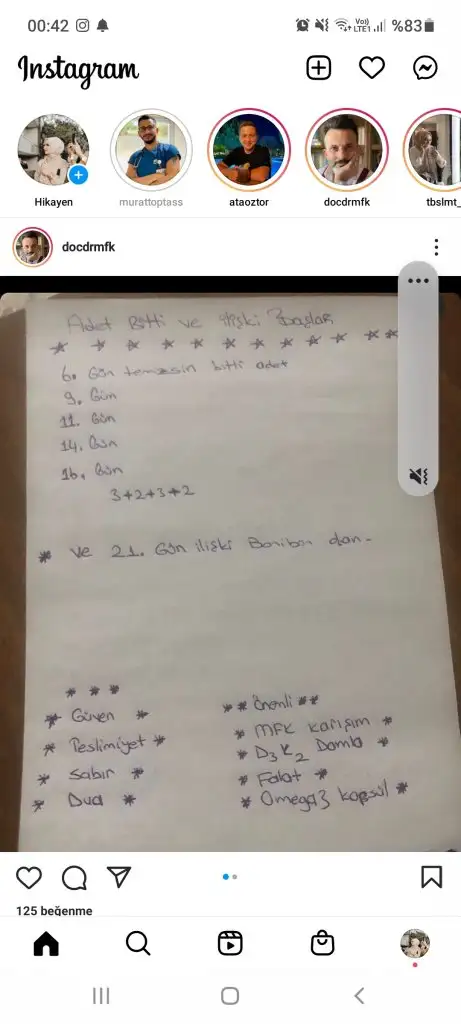 00:42
Vo))
LTE1
%83
Instagram
Hikayen
murattoptass
ataoztor
docdrmfk
tbslmt_
docdrmfk
Adet Bitti ve ilişki Başlar
6. Gün temizsin bitti adet
9. Gün
11. Gün
14. Gün
16. Gün
3+2+3+2
* ve 21. Gün ilişki
* * *
* Güven *
* Teslimiyet *
* Sabır *
* Dua *
** Önemli **
* MFK karışım *
* D3 K2 Damla *
* Folat *
* Omega3 kapsül *
125 beğenme